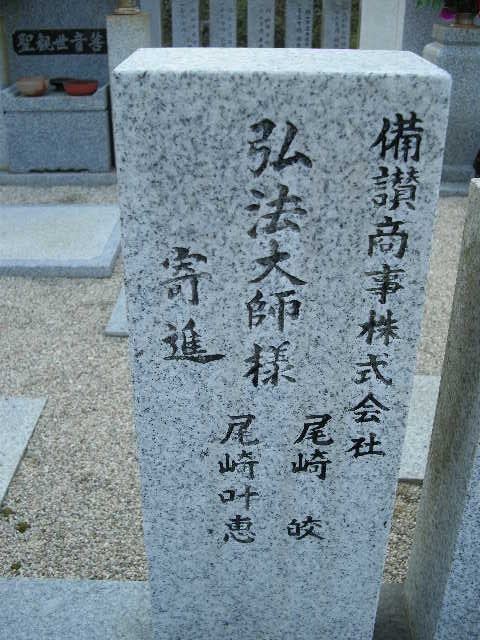 備讃商事株式会社
尾崎 皎
弘法大師様
尾崎叶恵
寄進
聖観世音菩